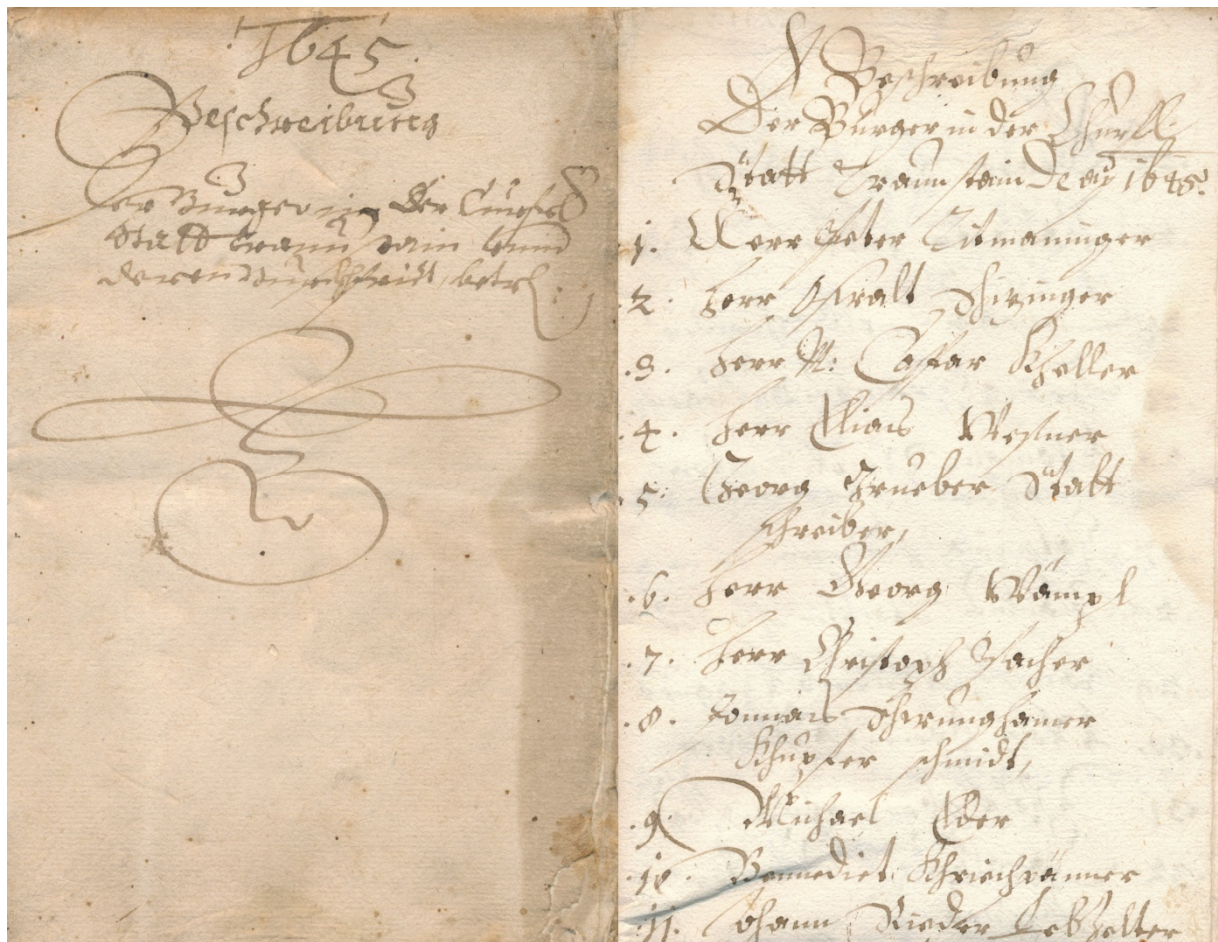 1645.
Beschreibung
Der Burger in der Churfl:
Statt Traunstain vnnd
deren
Beschreibung
Der Burger in der Churfl:
Statt Traunstain De ao 1645.
1. Herr Peter Titmaninger
.2. Herr Oswalt Schizinger
.3. Herr M: Caspar Kheller
.4. Herr Elias Wesner
.5. Georg Grueber Statt
schreiber,
.6. Herr Georg Wämpl
.7. Herr Christoph Pacher
.8. Thomas
Khupfer schmidt,
.9. Michael Eder
.10. Bennedict
.11. Johann Rieder Lebzelter